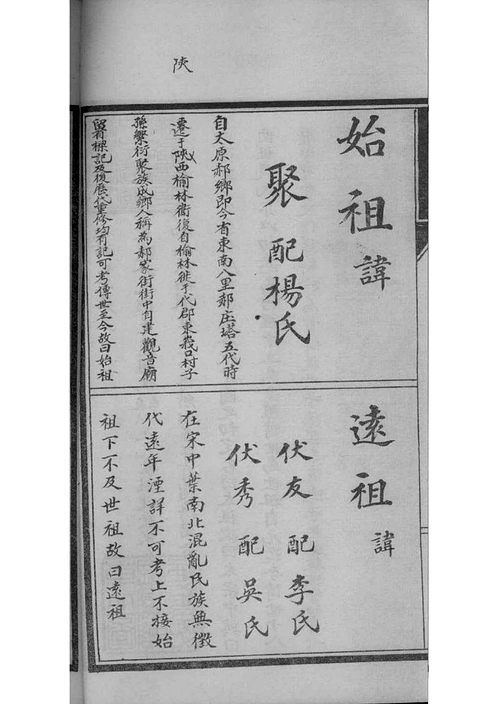 陝
始祖諱
聚 配楊氏
自太原郝鄉即今省東南八里郝庄塔五代時
遷于陝西榆林衛復自榆林徙于代郡東義口村子
孫繁衍聚族成鄉人稱為郝家街街中自建觀音廟
留有碑記及後歷代重修均有記可考傳世至今故曰始祖
遠祖諱
伏友 配李氏
伏秀 配吳氏
在宋中葉南北混亂民族無徵
代遠年湮詳不可考上不接始
祖下不及世祖故曰遠祖